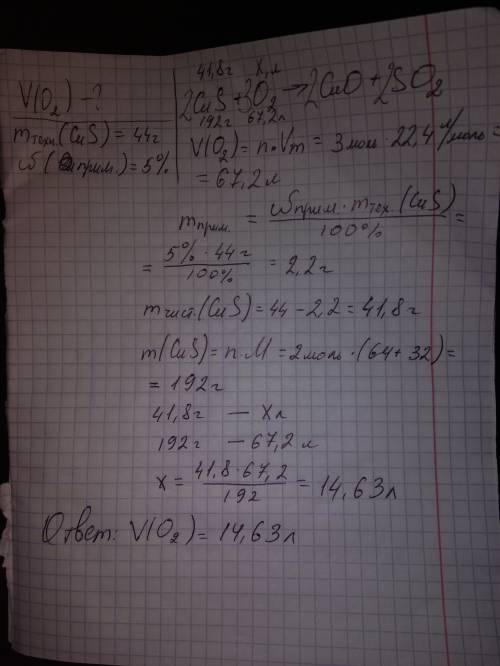 V(O₂) - ?
mтехн.(CuS) = 44г
ω(прим.) = 5%
41,8г   X,л
2CuS + 3O₂ → 2CuO + 2SO₂
192г   67,2л
V(O₂) = n·Vm = 3моль · 22,4 л/моль =
= 67,2л
mприм. = ωприм. · mтех.(CuS) / 100% =
= 5% · 44г / 100% = 2,2г
mчист.(CuS) = 44 - 2,2 = 41,8г
m(CuS) = n·M = 2моль · (64 + 32) =
= 192г
41,8г — Xл
192г — 67,2л
x = 41,8·67,2 / 192 = 14,63л
Ответ: V(O₂) = 14,63л